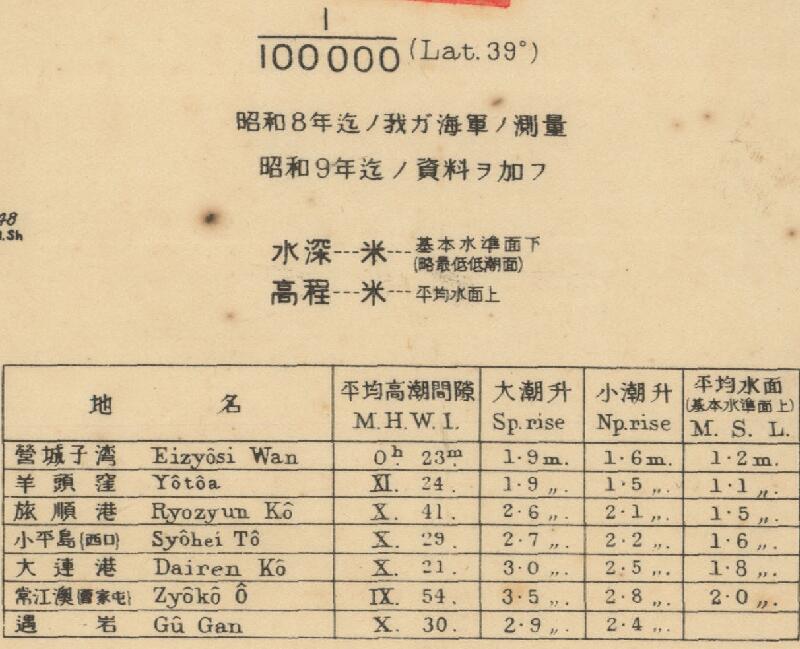 1
100000 (Lat. 39°)
昭和8年迄ノ我ガ海軍ノ測量
昭和9年迄ノ資料ヲ加フ
48
.Sh
水深---米---基本水準面下
(略最低低潮面)
高程---米---平均水面上
地名 平均高潮間隙 大潮升 小潮升 平均水面
(基本水準面上)
M.H.W.I. Sp.rise Np.rise M. S. L.
營城子湾 Eizyôsi Wan 0ʰ 23ᵐ. 1·9m. 1·6m. 1·2m.
羊頭窪 Yôtôa XI. 24. 1·9 〃. 1·5 〃. 1·1 〃.
旅順港 Ryozyun Kô X. 41. 2·6 〃. 2·1 〃. 1·5 〃.
小平島(西口) Syôhei Tô X. 29. 2·7 〃. 2·2 〃. 1·6 〃.
大連港 Dairen Kô X. 21. 3·0 〃. 2·5 〃. 1·8 〃.
常江澳 Zyôkô Ô IX. 54. 3·5 〃. 2·8 〃. 2·0 〃.
遇岩 Gû Gan X. 30. 2·9 〃. 2·4 〃.